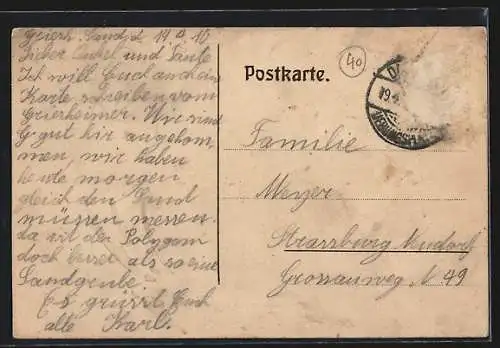 Griesh. Sand, d 19.4 10
Lieber Onkel und Tante
Ich will Euch auch ein
Karte schreiben vom
Griesheimer. Wir sind
Gut hir angekom-
men, wir haben
heute morgen
gleich den Sand
müssen messen.
da ist der Polygon
doch besser als so eine
Sandgrube.
Es grüsst Euch
alle Karl.
Postkarte.
40
Familie
Meyer
Strassburg Neudorf
Grossauweg N 49